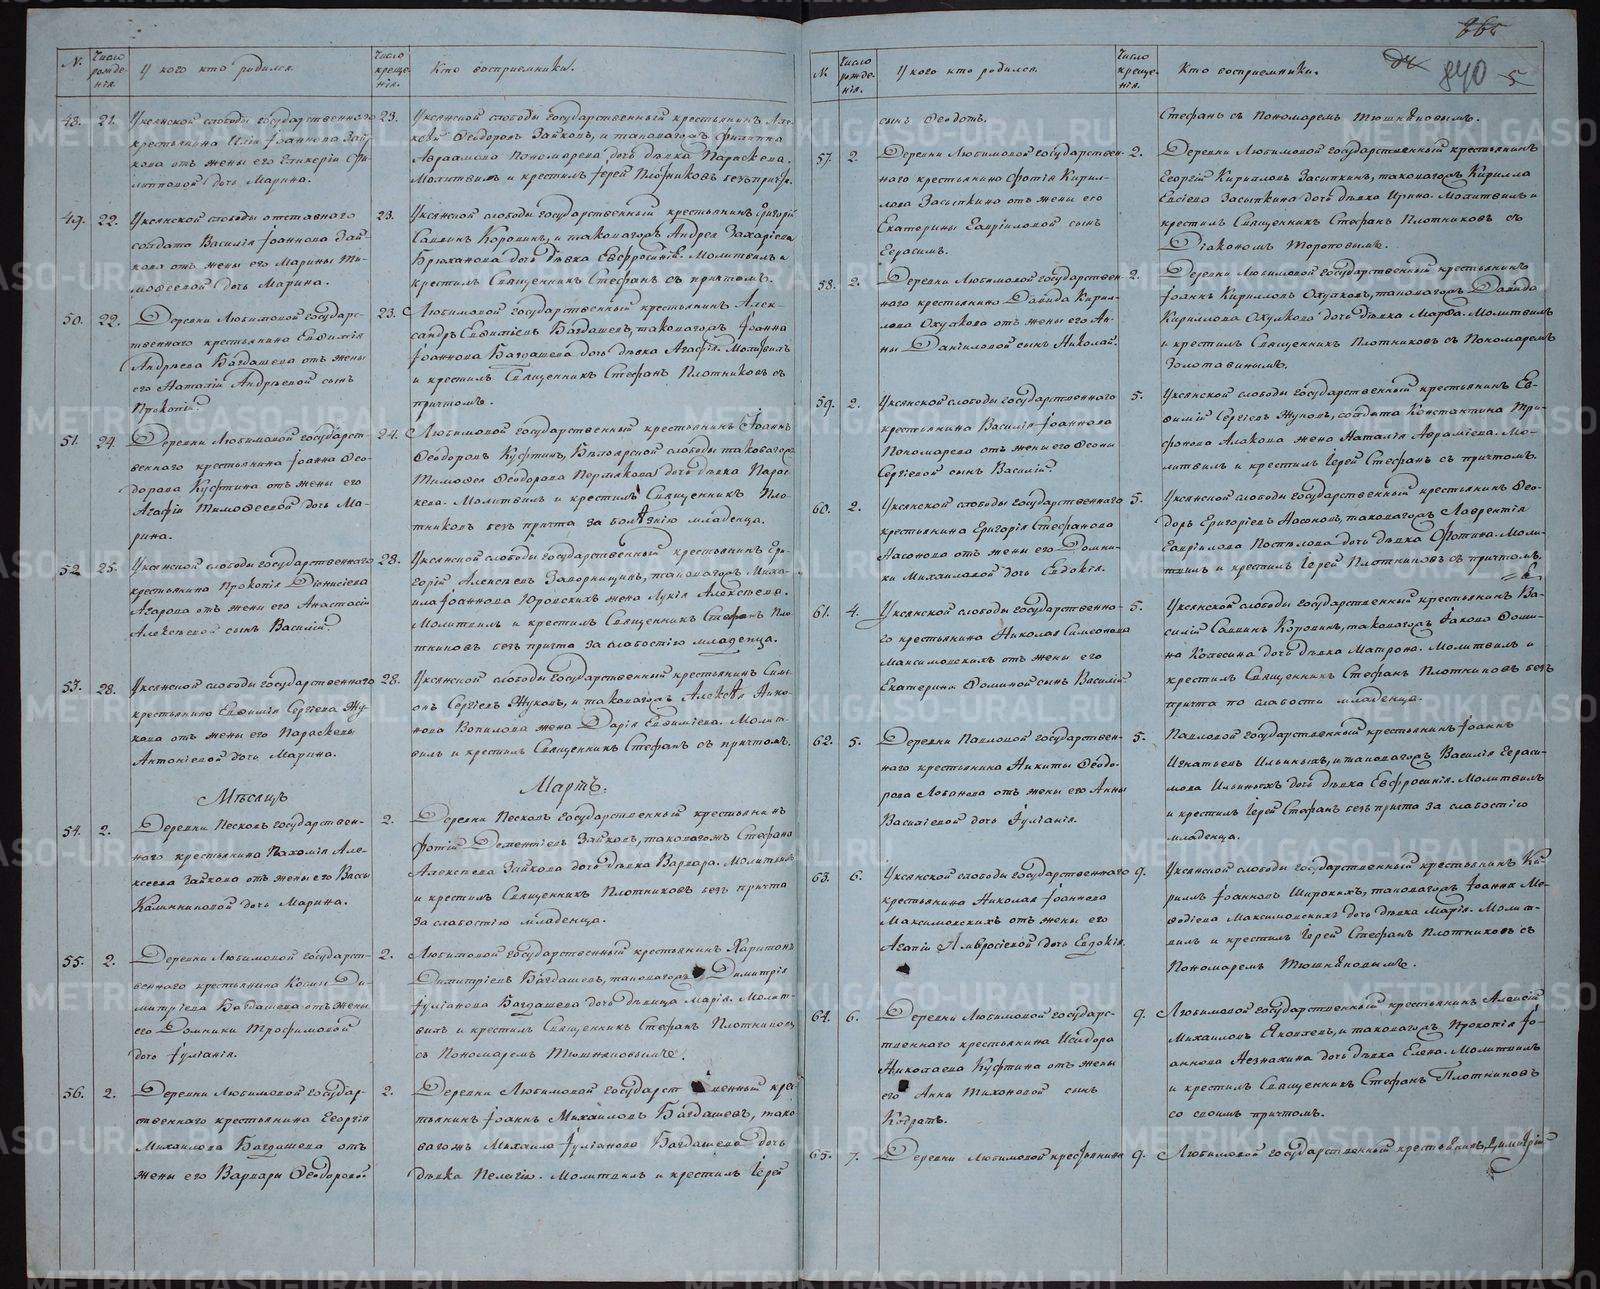 №.
Число рожде-нія.
У кого кто родился.
Число креще-нія.
Кто восприемники.
48. 21.
Уксянской слободы государственнаго
крестьянина Иліи Іоаннова Зай-
кова отъ жены его Гликеріи Фи-
липповой дочь Марина.
23.
Уксянской слободы государственный крестьянинъ Але-
ксѣй Ѳеодоровъ Зайковъ, и таковагожъ Филиппа
Авраамова Пономарева дочь дѣвка Параскева.
Молитвилъ и крестилъ Іерей Плотниковъ безъ причта.
49. 22.
Уксянской слободы отставнаго
солдата Василія Іоаннова Зай-
кова отъ жены его Марины Ти-
моѳеевой дочь Марина.
23.
Уксянской слободы государственный крестьянинъ Григорій
Саввинъ Коровинъ, и таковагожъ Андрея Захаріева
Брюханова дочь дѣвка Евфросинія. Молитвилъ и
крестилъ Священникъ Стефанъ съ причтомъ.
50. 22.
Деревни Любимовой государс-
твеннаго крестьянина Евѳимія
Андрѣева Багдашева отъ жены
его Наталіи Андрѣевой сынъ
Прокопій.
23.
Любимовой государственный крестьянинъ Алек-
сандръ Евѳиміевъ Багдашевъ, таковагожъ Іоанна
Іоаннова Багдашева дочь дѣвка Агафія. Молитвилъ
и крестилъ Священникъ Стефанъ Плотниковъ съ
причтомъ.
51. 24
Деревни Любимовой государст-
веннаго крестьянина Іоанна Ѳео-
дорова Куфтина отъ жены его
Агафіи Тимоѳеевой дочь Ма-
рина.
24.
Любимовой государственный крестьянинъ Іоаннъ
Ѳеодоровъ Куфтинъ, Бѣлоярской слободы таковагожъ
Тимоѳея Ѳеодорова Пермякова дочь дѣвка Парас-
кева. Молитвилъ и крестилъ Священникъ Пло-
тниковъ безъ причта за болѣзнію младенца.
52 25.
Уксянской слободы государственнаго
крестьянина Прокопія Діонисіева
Агарова отъ жены его Анастасіи
Алексѣевой сынъ Василій.
28.
Уксянской слободы государственный крестьянинъ Гри-
горій Алексѣевъ Заворницынъ, таковагожъ Миха-
ила Іоаннова Юровскихъ жена Лукія Алексѣева.
Молитвилъ и крестилъ Священникъ Стефанъ Пло-
тниковъ безъ причта за слабостію младенца.
53. 28.
Уксянской слободы государственнаго
крестьянина Евѳимія Сергѣева Жу-
кова отъ жены его Параскевы
Антоніевой дочь Марина.
28.
Уксянской слободы государственный крестьянинъ Сим-
онъ Сергѣевъ Жуковъ, и таковагожъ Алексѣя Нико-
нова Вопилова жена Дарія Евѳиміева. Молит-
вилъ и крестилъ Священникъ Стефанъ съ причтомъ.
Мѣсяцъ Мартъ.
54. 2.
Деревни Песковъ государствен-
наго крестьянина Пахомія Але-
ксеева Зайкова отъ жены его Вассы
Калинниковой дочь Марина.
2.
Деревни Песковъ государственный крестьянинъ
Фотій Дементіевъ Зайковъ, таковагожъ Стефана
Алексѣева Зайкова дочь дѣвка Варвара. Молитвилъ
и крестилъ Священникъ Плотниковъ безъ причта
за слабостію младенца.
55. 2.
Деревни Любимовой государст-
веннаго крестьянина Космы Ди-
митріева Багдашева отъ жены
его Домники Трофимовой
дочь Іуліанія.
2.
Любимовой государственный крестьянинъ Харитонъ
Димитріевъ Багдашевъ, таковагожъ Димитрія
Іуліанова Багдашева дочь дѣвица Марія. Молит-
вилъ и крестилъ Священникъ Стефанъ Плотниковъ
съ Пономаремъ Тюшняковымъ.
56. 2.
Деревни Любимовой государ-
ственнаго крестьянина Георгія
Михаилова Багдашева отъ
жены его Варвары Ѳеодоровой
2.
Деревни Любимовой государственный крес-
тьянинъ Іоаннъ Михаиловъ Багдашевъ, тако-
вагожъ Михаила Іуліанова Багдашева дочь
дѣвка Пелагія. Молитвилъ и крестилъ Іерей
840
5
№
Число рожде-нія.
У кого кто родился.
Число креще-нія.
Кто восприемники.
сынъ Ѳеодотъ.
Стефанъ съ Пономаремъ Тюшняковымъ.
57. 2
Деревни Любимовой государствен-
наго крестьянина Фотія Кирил-
лова Засыпкина отъ жены его
Екатерины Гавріиловой сынъ
Герасимъ.
2.
Деревни Любимовой государственный крестьянинъ
Георгій Кирилловъ Засыпкинъ, таковагожъ Кирилла
Евсіева Засыпкина дочь дѣвка Ирина. Молитвилъ и
крестилъ Священникъ Стефанъ Плотниковъ съ
Діакономъ Торотовымъ.
58. 2.
Деревни Любимовой государствен-
наго крестьянина Давида Кирил-
лова Охулкова отъ жены его Ан-
ны Даніиловой сынъ Николай.
2.
Деревни Любимовой государственный крестьянинъ
Іоаннъ Кирилловъ Охулковъ, таковагожъ Давида
Кириллова Охулкова дочь дѣвка Марѳа. Молитвилъ
и крестилъ Священникъ Плотниковъ съ Пономаремъ
Золотавинымъ.
59. 2.
Уксянской слободы государственнаго
крестьянина Василія Іоаннова
Пономарева отъ жены его Ѳеоны
Сергіевой сынъ Василій.
5.
Уксянской слободы государственный крестьянинъ Ев-
ѳимій Сергѣевъ Жуковъ, солдата Константина Три-
фонова Алакова жена Наталія Авраміева. Мо-
литвилъ и крестилъ Іерей Стефанъ съ причтомъ.
60. 2.
Уксянской слободы государственнаго
крестьянина Григорія Стефанова
Насонова отъ жены его Домни-
ки Михаиловой дочь Евдокія.
5.
Уксянской слободы государственный крестьянинъ Ѳео-
доръ Григоріевъ Насоновъ, таковагожъ Лаврентія
Гавріилова Поспѣлова дочь дѣвка Фотина. Моли-
твилъ и крестилъ Іерей Плотниковъ съ причтомъ.
61. 4.
Уксянской слободы государственна-
го крестьянина Николая Симеонова
Максимовскихъ отъ жены его
Екатерины Ѳоминой сынъ Василій.
5.
Уксянской слободы государственный крестьянинъ Ва-
силій Саввинъ Коровинъ, таковагожъ Іакова Ѳоми-
на Колесина дочь дѣвка Матрона. Молитвилъ и
крестилъ Священникъ Стефанъ Плотниковъ безъ
причта по слабости младенца.
62. 5.
Деревни Павловой государствен-
наго крестьянина Никиты Ѳеодо-
рова Лобанова отъ жены его Анны
Василіевой дочь Іуліанія.
5.
Павловой государственный крестьянинъ Іоаннъ
Игнатьевъ Ильиныхъ, и таковагожъ Василія Гераси-
мова Ильиныхъ дочь дѣвка Евфросинія. Молитвилъ
и крестилъ Іерей Стефанъ безъ причта за слабостію
младенца.
63. 6.
Уксянской слободы государственнаго
крестьянина Николая Іоаннова
Максимовскихъ отъ жены его
Агапіи Амвросіевой дочь Евдокія.
9.
Уксянской слободы государственный крестьянинъ Ки-
риллъ Іоанновъ Широкихъ, таковагожъ Іоанна Ме-
ѳодіева Максимовскихъ дочь дѣвка Марія. Молит-
вилъ и крестилъ Іерей Стефанъ Плотниковъ съ
Пономаремъ Тюшняковымъ.
64. 6.
Деревни Любимовой государс-
твеннаго крестьянина Исидора
Николаева Куфтина отъ жены
его Анны Тихоновой сынъ
Кодратъ.
9.
Любимовой государственный крестьянинъ Алексій
Михаиловъ Яковлевъ, и таковагожъ Прокопія Іо-
аннова Незнахина дочь дѣвка Елена. Молитвилъ
и крестилъ Священникъ Стефанъ Плотниковъ
со своимъ причтомъ.
65. 7.
Деревни Любимовой крестьянина
9.
Любимовой государственный крестьянинъ Димитрій